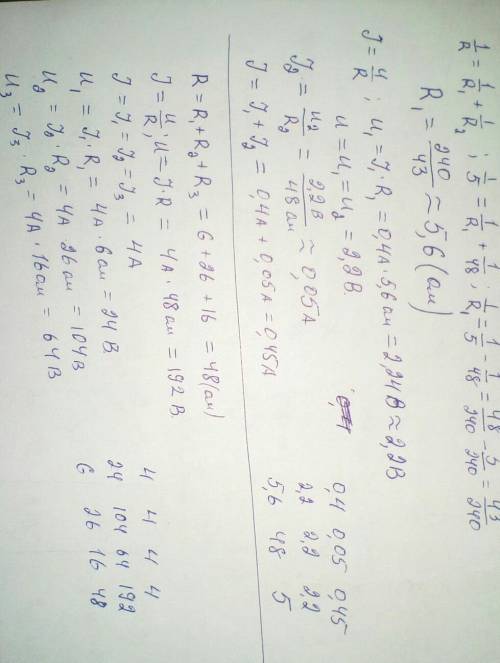 1/R = 1/R₁ + 1/R₂ ; 1/5 = 1/R₁ + 1/48 ; R₁ = 1/5 - 1/48 = 48/240 - 5/240 = 43/240
R₁ = 240/43 ≈ 5,6 (ом)
J = U/R ; U₁ = J₁·R₁ = 0,4А·5,6ом = 2,24В ≈ 2,2В
U = U₁ = U₂ = 2,2В.
J₂ = U₂/R₂ = 2,2В/48ом ≈ 0,05А
J = J₁ + J₂ = 0,4А + 0,05А = 0,45А
0,4 0,05 0,45
2,2 2,2 2,2
5,6 48 5
R = R₁ + R₂ + R₃ = 6 + 26 + 16 = 48 (ом)
J = U/R; U = J·R = 4А·48ом = 192В.
J = J₁ = J₂ = J₃ = 4А
U₁ = J₁·R₁ = 4А·6ом = 24В.
U₂ = J₂·R₂ = 4А 26ом = 104В
U₃ = J₃·R₃ = 4А·16ом = 64В
4 4 4 4
24 104 64 192
6 26 16 48